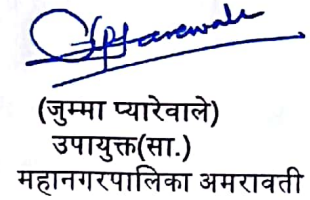 (जुम्मा प्यारेवाले)
उपायुक्त(सा.)
महानगरपालिका अमरावती